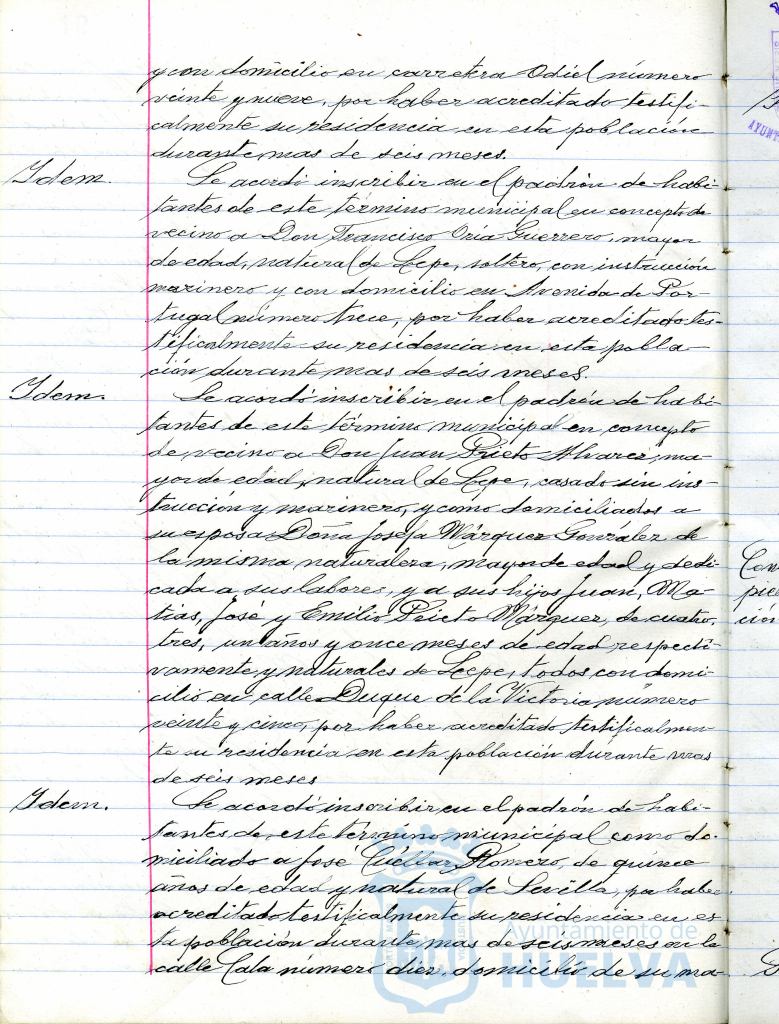 y con domicilio en carretera Odiel número
veinte y nueve, por haber acreditado testifi-
calmente su residencia en esta población
durante mas de seis meses.
Idem. Se acordó inscribir en el padrón de habi-
tantes de este término municipal en concepto de
vecino a Don Francisco Oría Guerrero, mayor
de edad, natural de Lepe, soltero, con instrucción
marinero y con domicilio en Avenida de Por-
tugal número trece, por haber acreditado tes-
tificalmente su residencia en esta pobla-
ción durante mas de seis meses.
Idem. Se acordó inscribir en el padrón de habi-
tantes de este término municipal en concepto
de vecino a Don Juan Prieto Alvarez, ma-
yor de edad, natural de Lepe, casado sin ins-
trucción y marinero, y como domiciliados a
su esposa Doña Josefa Márquez González de
la misma naturaleza, mayor de edad y dedi-
cada a sus labores, y a sus hijos Juan, Ma-
tias, José y Emilio Prieto Márquez, de cuatro,
tres, un años y once meses de edad respecti-
vamente y naturales de Lepe, todos con domi-
cilio en calle Duque de la Victoria número
veinte y cinco, por haber acreditado testificalmen-
te su residencia en esta población durante mas
de seis meses
Idem. Se acordó inscribir en el padrón de habi-
tantes de este término municipal como do-
miciliado a José Cuéllar Romero, de quince
años de edad y natural de Sevilla, por haber
acreditado testificalmente su residencia en es-
ta población durante mas de seis meses en la
calle Cala número diez, domicilio de su ma-
Ayuntamiento de
HUELVA
Con
pie
ción
AYUNT